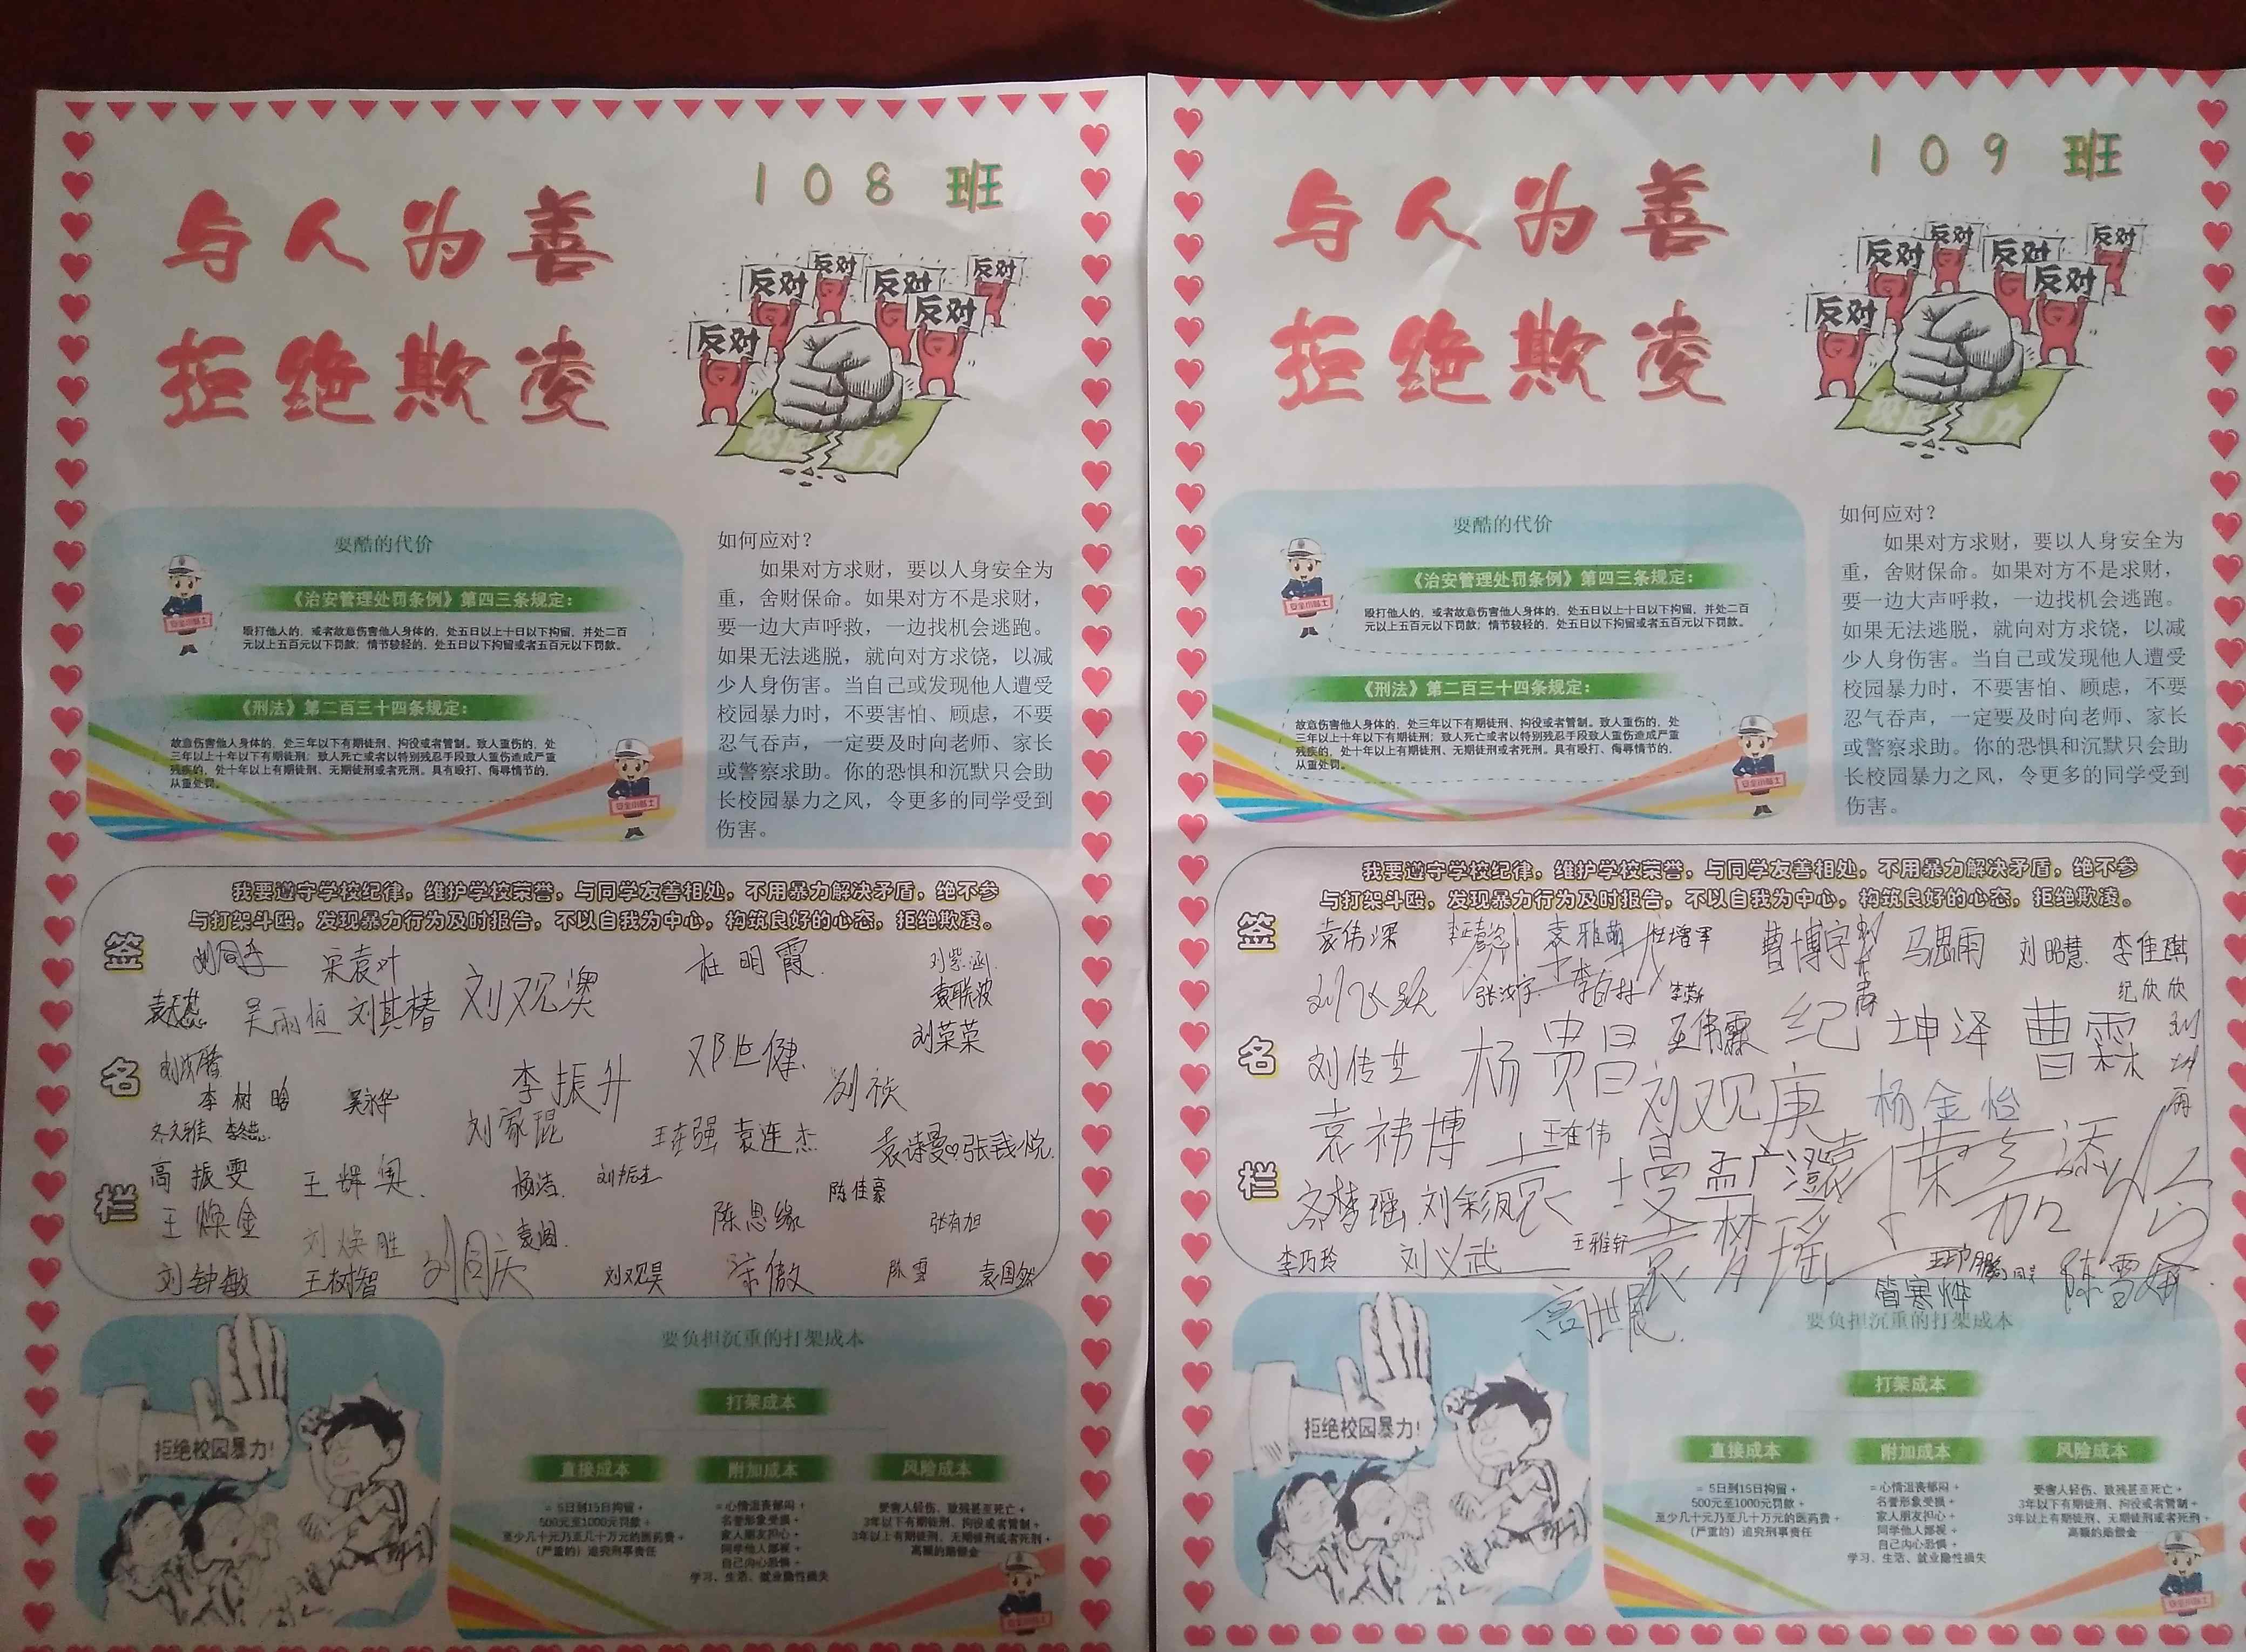 108 班
与人为善
拒绝欺凌
反对
反对
反对
反对
反对
反对
耍酷的代价
《治安管理处罚条例》第四三条规定：
殴打他人的，或者故意伤害他人身体的，处五日以上十日以下拘留，并处二百
元以上五百元以下罚款；情节较轻的，处五日以下拘留或者五百元以下罚款。
《刑法》第二百三十四条规定：
故意伤害他人身体的，处三年以下有期徒刑、拘役或者管制。致人重伤的，处
三年以上十年以下有期徒刑；致人死亡或者以特别残忍手段致人重伤造成严重
残疾的，处十年以上有期徒刑、无期徒刑或者死刑。具有殴打、侮辱情节的，
从重处罚。
如何应对？
如果对方求财，要以人身安全为
重，舍财保命。如果对方不是求财，
要一边大声呼救，一边找机会逃跑。
如果无法逃脱，就向对方求饶，以减
少人身伤害。当自己或发现他人遭受
校园暴力时，不要害怕、顾虑，不要
忍气吞声，一定要及时向老师、家长
或警察求助。你的恐惧和沉默只会助
长校园暴力之风，令更多的同学受到
伤害。
我要遵守学校纪律，维护学校荣誉，与同学友善相处，不用暴力解决矛盾，绝不参
与打架斗殴，发现暴力行为及时报告，不以自我为中心，构筑良好的心态，拒绝欺凌。
签名栏
宋袁叶
杜明霞
刘紫涵
袁联波
吴雨恒
刘其椿
刘观澳
刘荣荣
李振升
刘祯
李树晗
吴永华
刘家琨
王在强
袁连杰
高振雯
王辉
杨洁
陈佳豪
王焕金
刘焕胜
陈思缘
张有旭
刘钟敏
王树智
刘同庆
刘观昊
宋傲
陈雪
袁国然
拒绝校园暴力！
要负担沉重的打架成本
打架成本
直接成本
= 5日到15日拘留 +
500元至1000元罚款 +
至少几十元乃至几十万元的医药费 +
（严重的）追究刑事责任
附加成本
= 心情沮丧郁闷 +
名誉形象受损 +
家人朋友担心 +
同学他人鄙视 +
自己内心恐惧 +
学习、生活、就业隐性损失
风险成本
受害人轻伤、致残甚至死亡 +
3年以下有期徒刑、拘役或者管制 +
3年以上有期徒刑、无期徒刑或者死刑 +
高额的赔偿金
109 班
与人为善
拒绝欺凌
反对
反对
反对
反对
反对
反对
耍酷的代价
《治安管理处罚条例》第四三条规定：
殴打他人的，或者故意伤害他人身体的，处五日以上十日以下拘留，并处二百
元以上五百元以下罚款；情节较轻的，处五日以下拘留或者五百元以下罚款。
《刑法》第二百三十四条规定：
故意伤害他人身体的，处三年以下有期徒刑、拘役或者管制。致人重伤的，处
三年以上十年以下有期徒刑；致人死亡或者以特别残忍手段致人重伤造成严重
残疾的，处十年以上有期徒刑、无期徒刑或者死刑。具有殴打、侮辱情节的，
从重处罚。
如何应对？
如果对方求财，要以人身安全为
重，舍财保命。如果对方不是求财，
要一边大声呼救，一边找机会逃跑。
如果无法逃脱，就向对方求饶，以减
少人身伤害。当自己或发现他人遭受
校园暴力时，不要害怕、顾虑，不要
忍气吞声，一定要及时向老师、家长
或警察求助。你的恐惧和沉默只会助
长校园暴力之风，令更多的同学受到
伤害。
我要遵守学校纪律，维护学校荣誉，与同学友善相处，不用暴力解决矛盾，绝不参
与打架斗殴，发现暴力行为及时报告，不以自我为中心，构筑良好的心态，拒绝欺凌。
签名栏
袁伟深
袁雅萌
杜增军
曹博宇
马思雨
刘昭慧
李佳琪
刘飞跃
纪欣欣
刘传芝
杨贵昌
王伟霖
纪坤泽
曹霖
刘观庚
杨金怡
袁祎博
王在伟
孟广澄
齐梦瑶
刘彩凤
李巧玲
刘义武
王雅轩
拒绝校园暴力！
要负担沉重的打架成本
打架成本
直接成本
= 5日到15日拘留 +
500元至1000元罚款 +
至少几十元乃至几十万元的医药费 +
（严重的）追究刑事责任
附加成本
= 心情沮丧郁闷 +
名誉形象受损 +
家人朋友担心 +
同学他人鄙视 +
自己内心恐惧 +
学习、生活、就业隐性损失
风险成本
受害人轻伤、致残甚至死亡 +
3年以下有期徒刑、拘役或者管制 +
3年以上有期徒刑、无期徒刑或者死刑 +
高额的赔偿金